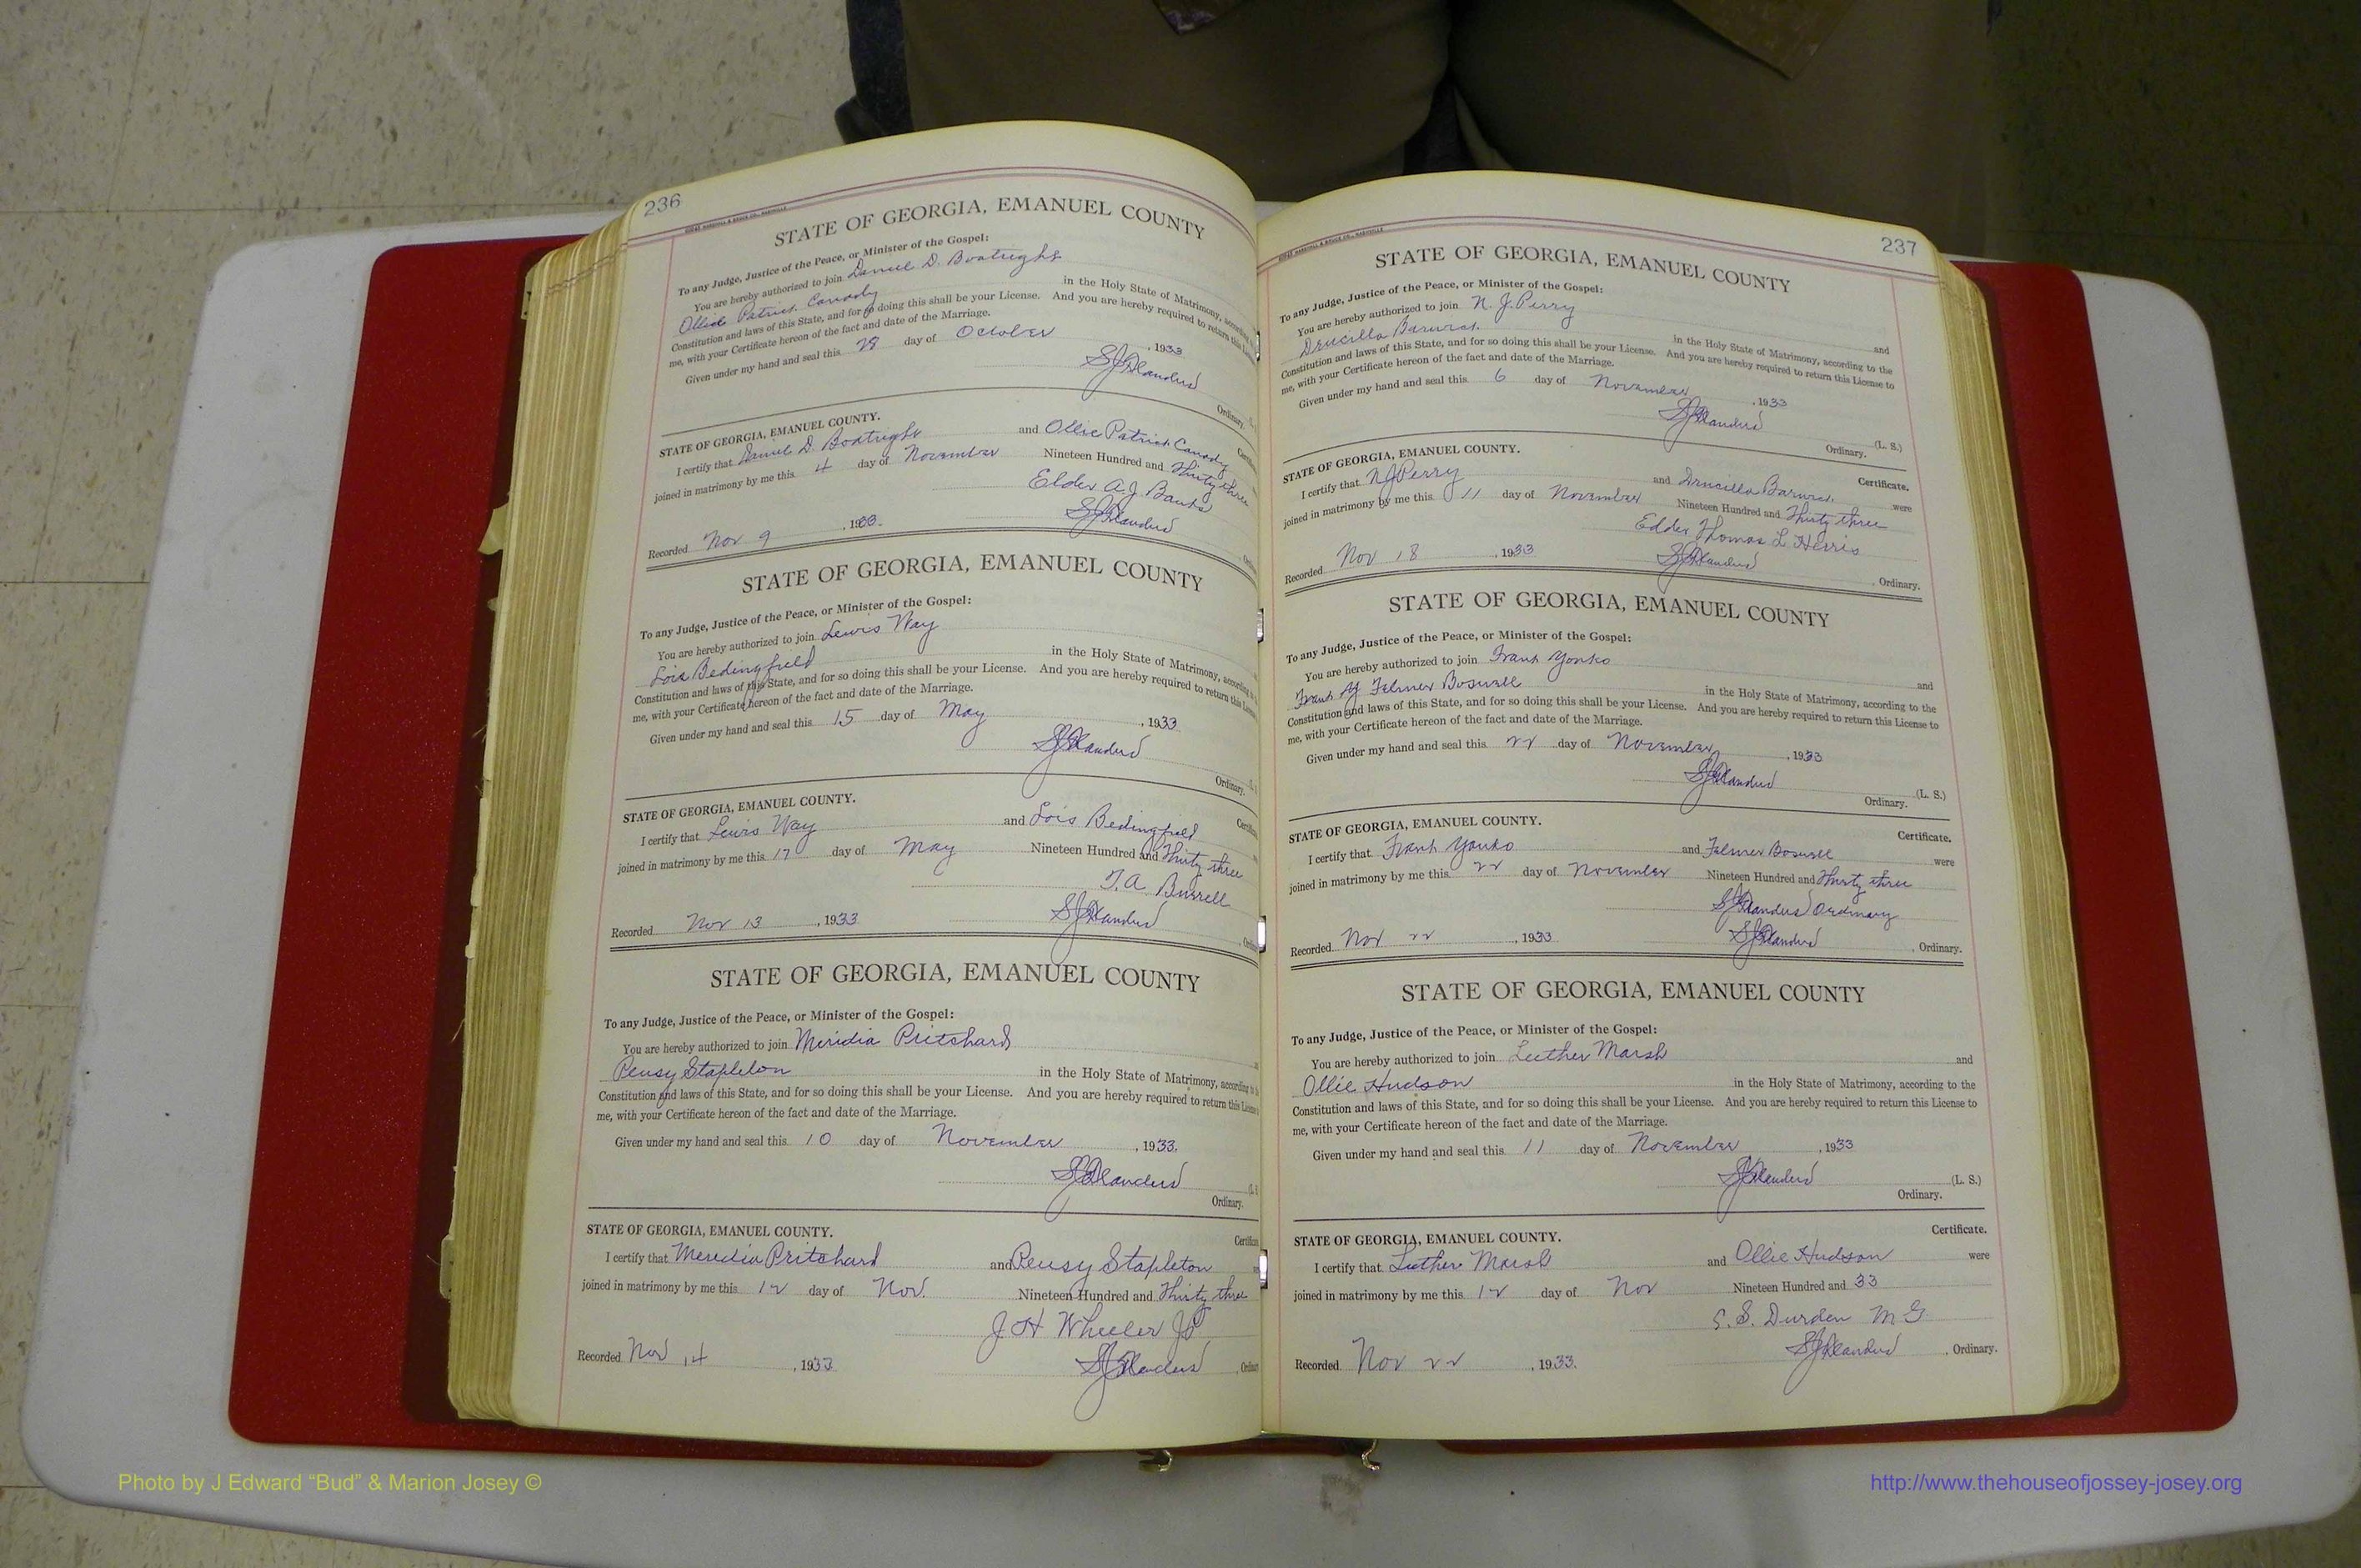 236
STATE OF GEORGIA, EMANUEL COUNTY
To any Judge, Justice of the Peace, or Minister of the Gospel:
You are hereby authorized to join Daniel D. Boatright
Ollie Patrick Canady in the Holy State of Matrimony, according
Constitution and laws of this State, and for so doing this shall be your License. And you are hereby required to return this
me, with your Certificate hereon of the fact and date of the Marriage.
Given under my hand and seal this 28 day of October, 1933
SJ Flanders
Ordinary.
STATE OF GEORGIA, EMANUEL COUNTY.
I certify that Daniel D. Boatright and Ollie Patrick Canady
joined in matrimony by me this 4 day of November Nineteen Hundred and Thirty three
Elder A. J. Banks
Recorded Nov 9, 1933. SJ Flanders
STATE OF GEORGIA, EMANUEL COUNTY
To any Judge, Justice of the Peace, or Minister of the Gospel:
You are hereby authorized to join Lewis Way
Lois Bedingfield in the Holy State of Matrimony, according
Constitution and laws of this State, and for so doing this shall be your License. And you are hereby required to return this
me, with your Certificate hereon of the fact and date of the Marriage.
Given under my hand and seal this 15 day of May, 1933
SJ Flanders
Ordinary.
STATE OF GEORGIA, EMANUEL COUNTY.
I certify that Lewis Way and Lois Bedingfield
joined in matrimony by me this 17 day of May Nineteen Hundred and Thirty three
T. A. Burrell
Recorded Nov 13, 1933 SJ Flanders
STATE OF GEORGIA, EMANUEL COUNTY
To any Judge, Justice of the Peace, or Minister of the Gospel:
You are hereby authorized to join Meridia Pritchard
Pensy Stapleton in the Holy State of Matrimony, according to
Constitution and laws of this State, and for so doing this shall be your License. And you are hereby required to return this
me, with your Certificate hereon of the fact and date of the Marriage.
Given under my hand and seal this 10 day of November, 1933.
SJ Flanders
Ordinary.
STATE OF GEORGIA, EMANUEL COUNTY.
I certify that Meridia Pritchard and Pensy Stapleton
joined in matrimony by me this 12 day of Nov. Nineteen Hundred and Thirty three
J H Wheeler JP
Recorded Nov 14, 1933 SJ Flanders
237
STATE OF GEORGIA, EMANUEL COUNTY
To any Judge, Justice of the Peace, or Minister of the Gospel:
You are hereby authorized to join N. J. Perry and
Drucilla in the Holy State of Matrimony, according to the
Constitution and laws of this State, and for so doing this shall be your License. And you are hereby required to return this License to
me, with your Certificate hereon of the fact and date of the Marriage.
Given under my hand and seal this 6 day of November, 1933
SJ Flanders (L. S.)
Ordinary.
STATE OF GEORGIA, EMANUEL COUNTY. Certificate.
I certify that N J Perry and Drucilla were
joined in matrimony by me this 11 day of November Nineteen Hundred and Thirty three
Elder Thomas L. Herris
Recorded Nov 18, 1933 SJ Flanders, Ordinary.
STATE OF GEORGIA, EMANUEL COUNTY
To any Judge, Justice of the Peace, or Minister of the Gospel:
You are hereby authorized to join Frank Yonko and
Boswell in the Holy State of Matrimony, according to the
Constitution and laws of this State, and for so doing this shall be your License. And you are hereby required to return this License to
me, with your Certificate hereon of the fact and date of the Marriage.
Given under my hand and seal this 22 day of November, 1933
SJ Flanders (L. S.)
Ordinary.
STATE OF GEORGIA, EMANUEL COUNTY. Certificate.
I certify that Frank Yonko and Boswell were
joined in matrimony by me this 22 day of November Nineteen Hundred and Thirty three
SJ Flanders Ordinary
Recorded Nov 22, 1933 SJ Flanders, Ordinary.
STATE OF GEORGIA, EMANUEL COUNTY
To any Judge, Justice of the Peace, or Minister of the Gospel:
You are hereby authorized to join Luther Marsh and
Ollie Hudson in the Holy State of Matrimony, according to the
Constitution and laws of this State, and for so doing this shall be your License. And you are hereby required to return this License to
me, with your Certificate hereon of the fact and date of the Marriage.
Given under my hand and seal this 11 day of November, 1933
SJ Flanders (L. S.)
Ordinary.
STATE OF GEORGIA, EMANUEL COUNTY. Certificate.
I certify that Luther Marsh and Ollie Hudson were
joined in matrimony by me this 12 day of Nov Nineteen Hundred and 33
S. S. Durden M G
Recorded Nov 22, 1933. SJ Flanders, Ordinary.
Photo by J Edward “Bud” & Marion Josey ©
http://www.thehouseofjossey-josey.org